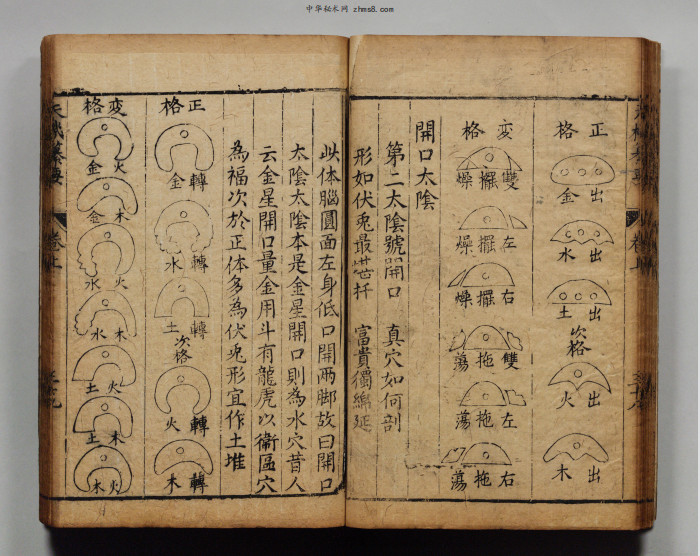 中华秘术网 zhms8.com
正格
出金
出水
出土
次格
出火
出木
変格
雙擺燥
左擺燥
右擺燥
雙拖蕩
左拖蕩
右拖蕩
開口太陰
第二太陰號開口 真穴如何剖
形如伏兎最 富貴獨綿延
此体腦圓面左身低口開两脚故曰開口
太陰太陰本是金星開口則為水穴昔人
云金星開口量金用斗有龍虎以衛區穴
為福次於正体多為伏兎形宜作土堆
正格
轉金
轉水
轉土
次格
轉火
轉木
変格
火金
木金
火水
木水
火土
木土
火木
卷上